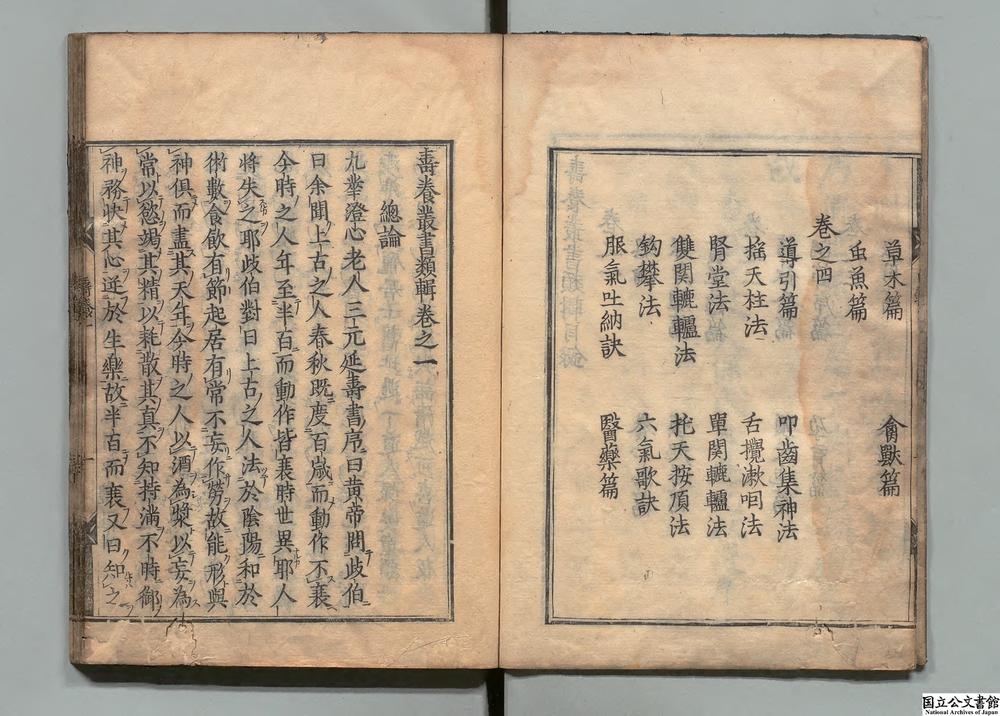 草木篇　禽獸篇
虫魚篇
卷之四
導引篇　叩齒集神法
搖天柱法　舌攪漱咽法
腎堂法　單関轆轤法
雙関轆轤法　托天按頂法
鈎攀法　六氣歌訣
服氣吐納訣　醫藥篇
壽養叢書類輯卷之一
總論
九峯澄心老人三元延壽書序曰黃帝問歧伯
曰余聞上古之人春秋既度百歲而動作不衰
今時之人年至半百而動作皆衰時世異耶人
將失之耶歧伯對曰上古之人法於陰陽和於
術數食飲有節起居有常不妄作勞故能形與
神俱而盡其天年今時之人以酒為漿以妄為
常以慾竭其精以耗散其真不知持滿不時御
神務快其心逆於生樂故半百而衰又曰知之
国立公文書館
National Archives of Japan